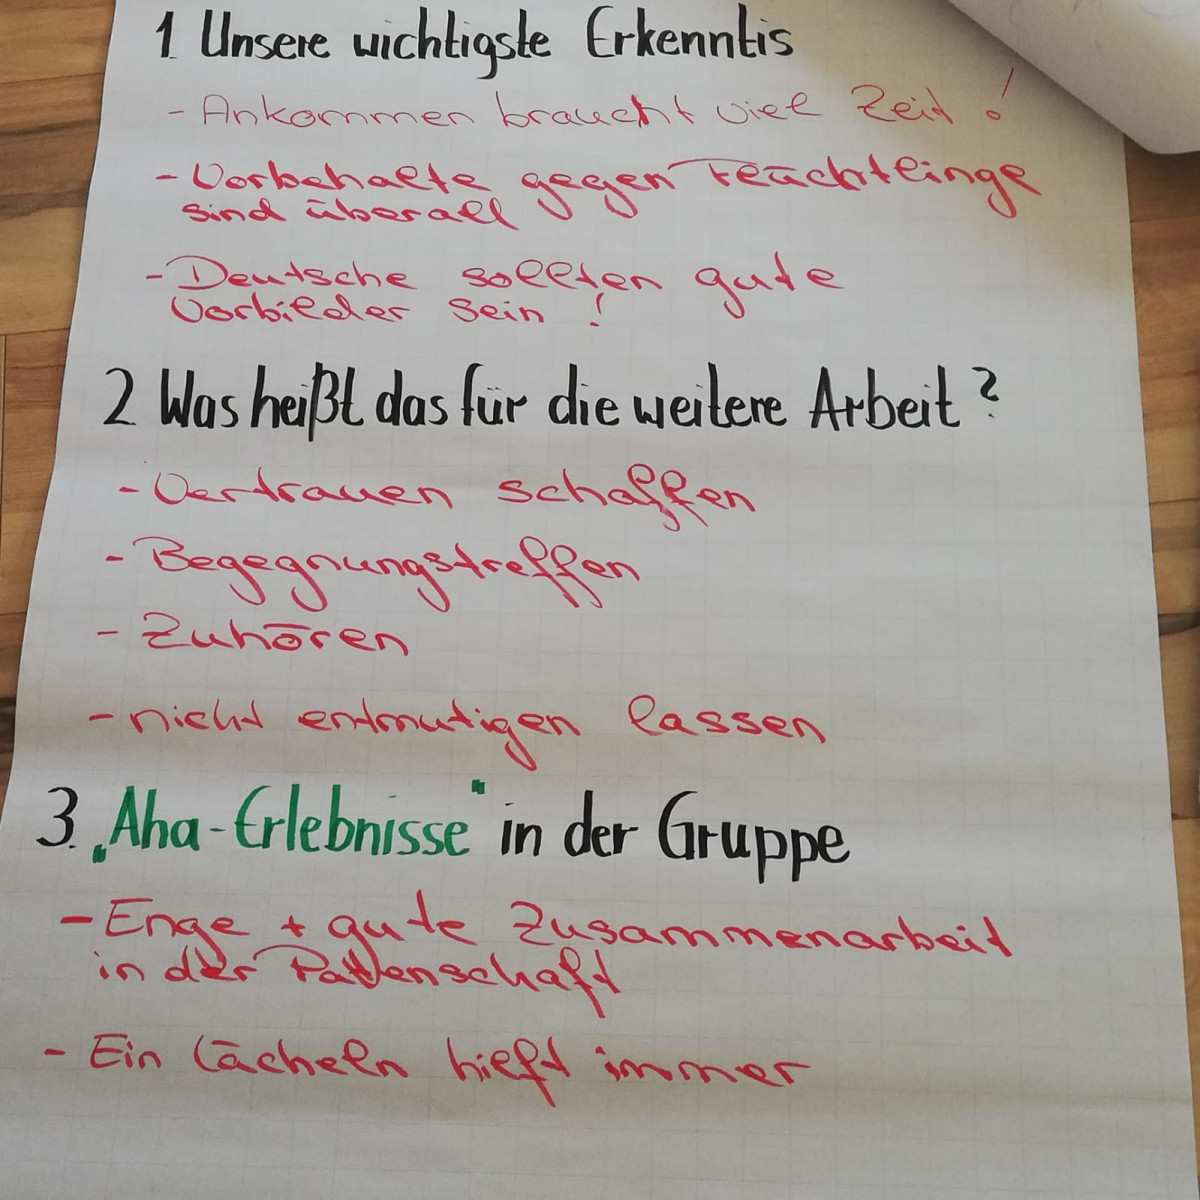 1. Unsere wichtigste Erkenntis
- Ankommen braucht viel Zeit!
- Vorbehalte gegen Feüchtlinge
sind überall
- Deutsche sollten gute
Vorbilder sein!
2. Was heißt das für die weitere Arbeit?
- Vertrauen schaffen
- Begegnungstreffen
- Zuhören
- nicht entmutigen lassen
3. „Aha-Erlebnisse" in der Gruppe
- Enge + gute Zusammenarbeit
in der Patenschaft
- Ein Lächeln hielft immer